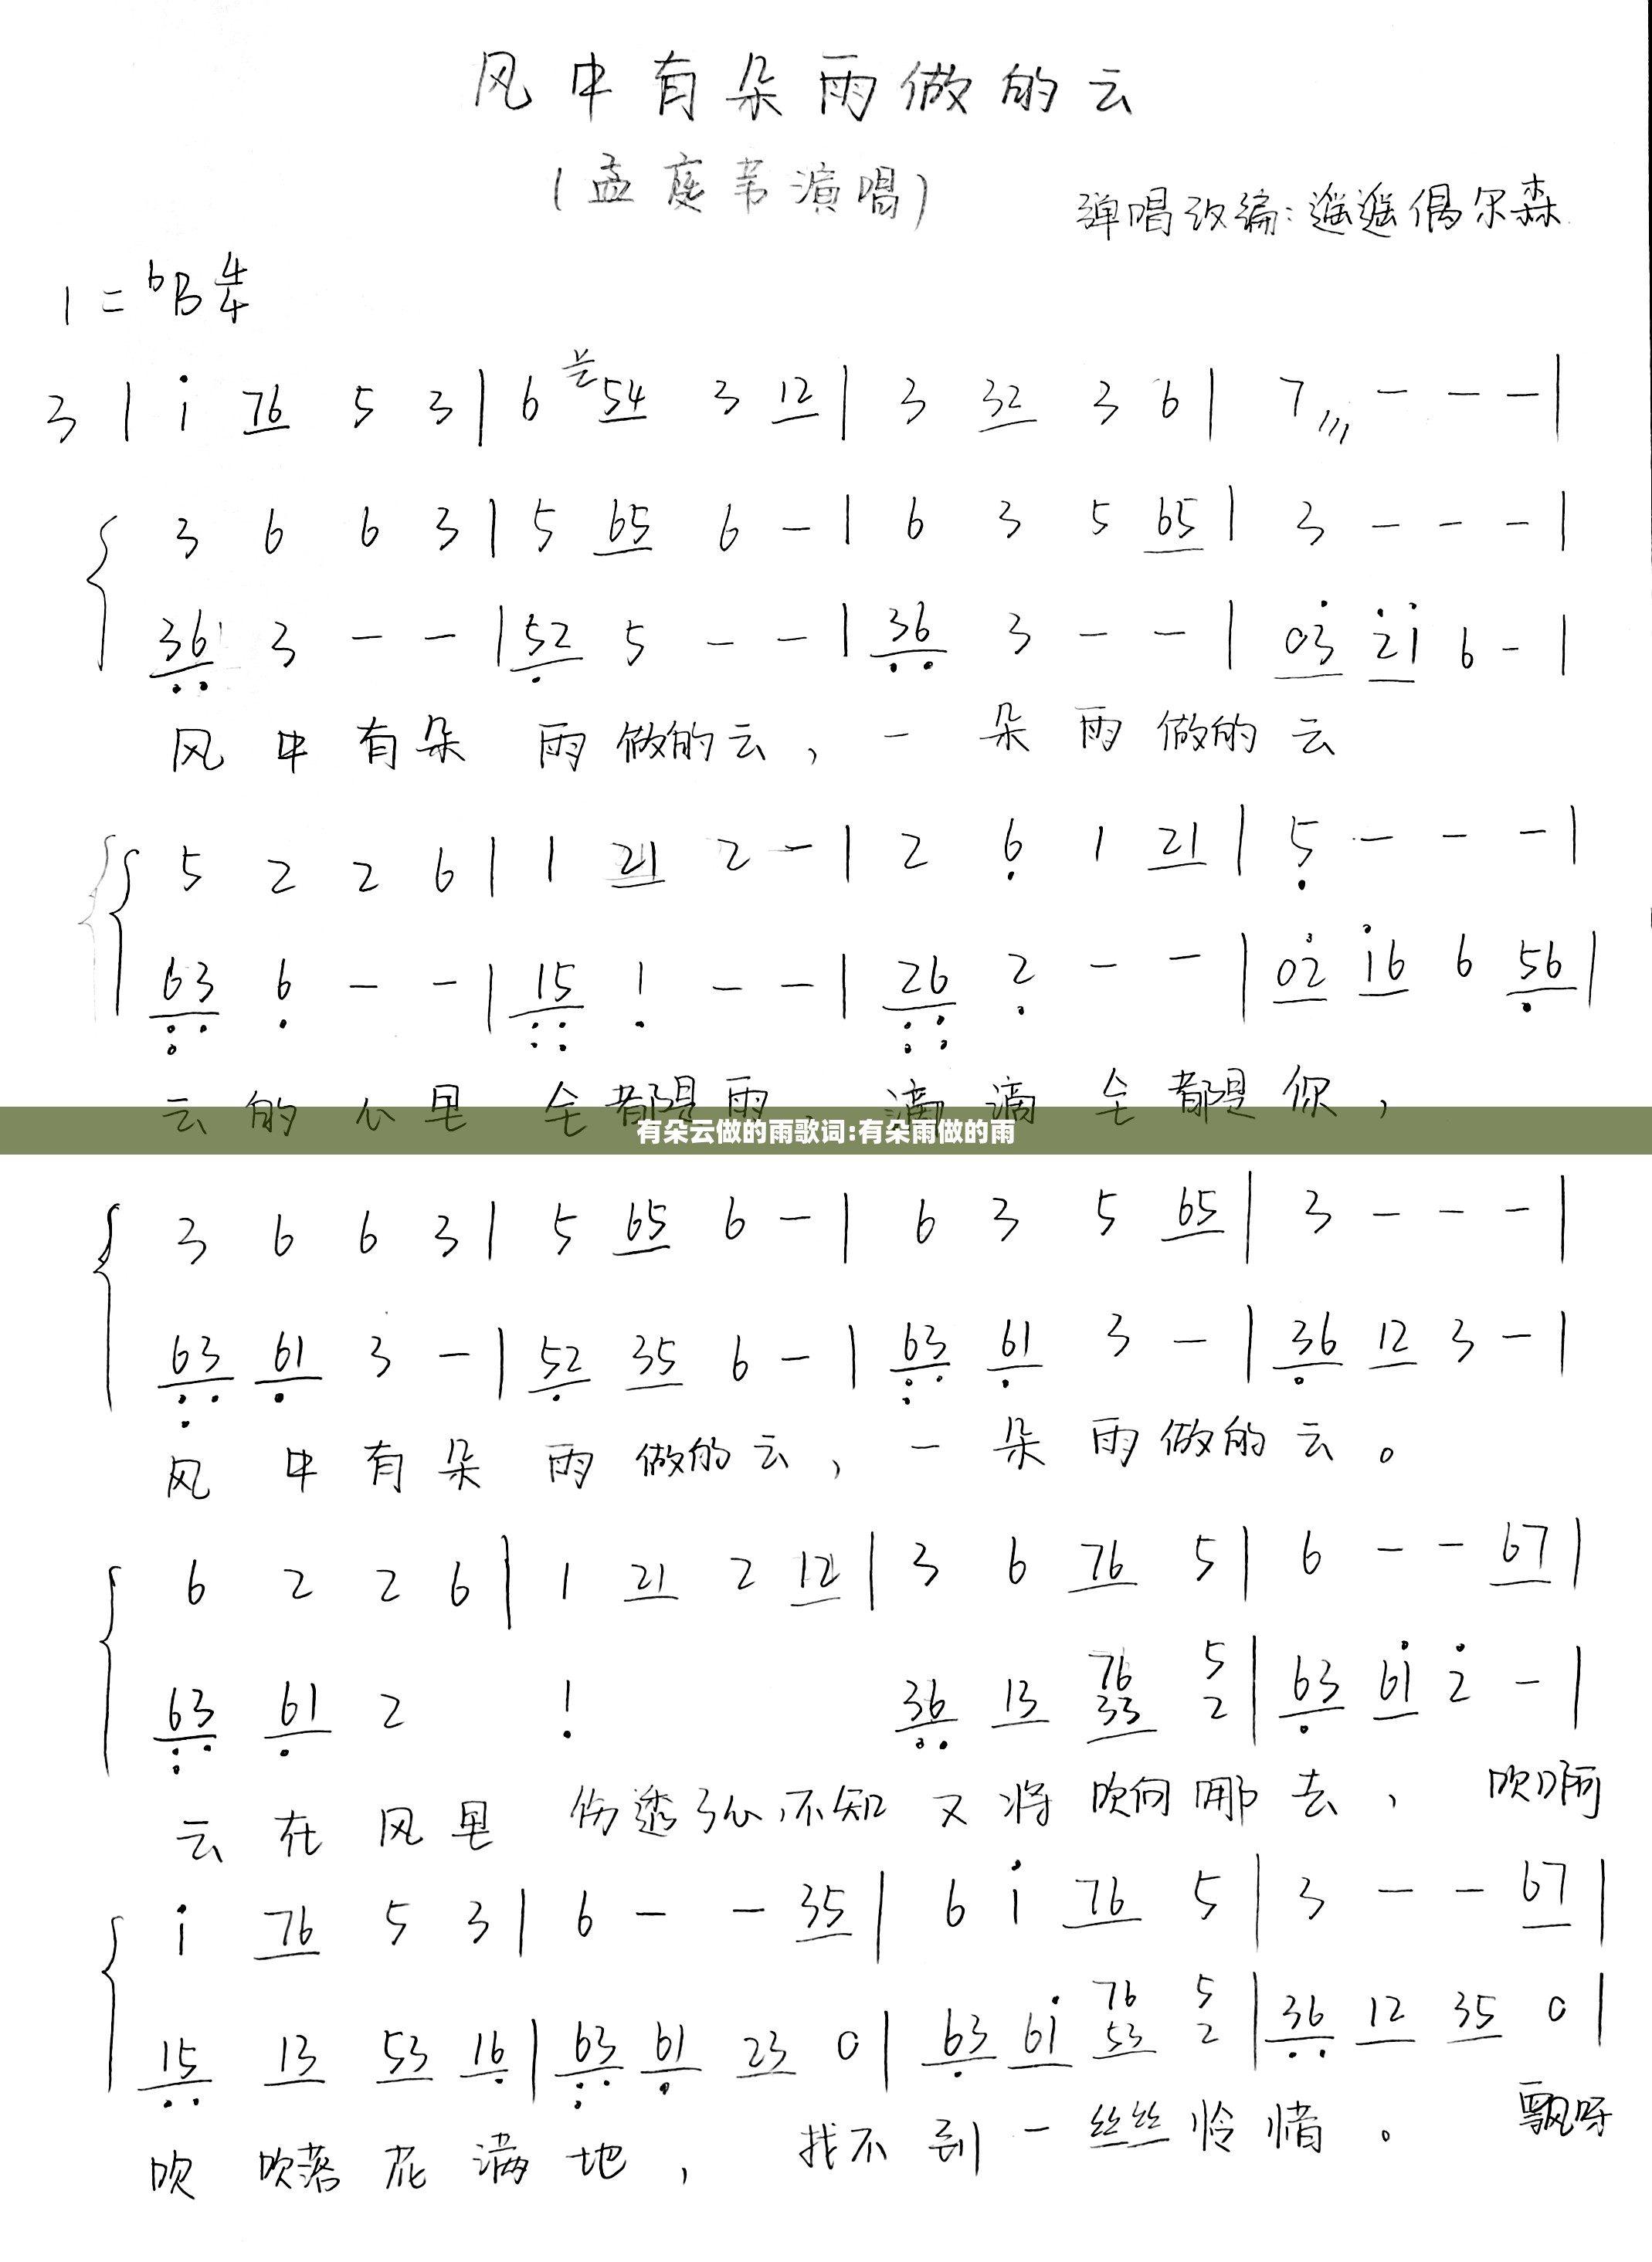 风中有朵雨做的云
(孟庭苇演唱)
弹唱改编:遥遥偶尔森
1=♭B 4/4
3 | i 76 5 3 | 6 54 3 12 | 3 32 3 6 | 7 - - - |
3 6 6 3 | 5 65 6 - | 6 3 5 65 | 3 - - - |
36 3 - - | 52 5 - - | 36 3 - - | 03 21 6 - |
风中有朵 雨做的云，一朵雨做的云
5 2 2 6 | 1 21 2 - | 2 6 1 21 | 5 - - - |
63 6 - - | 15 1 - - | 26 2 - - | 02 16 6 56 |
云的心里 全都是雨，滴滴全都是你，
有朵云做的雨歌词:有朵雨做的雨
3 6 6 3 | 5 65 6 - | 6 3 5 65 | 3 - - - |
63 61 3 - | 52 35 6 - | 63 61 3 - | 36 12 3 - |
风中有朵 雨做的云，一朵雨做的云。
6 2 2 6 | 1 21 2 12 | 3 6 76 5 | 6 - - 67 |
76 5
63 61 2 1 36 13 33 2 | 63 61 2 - |
云在风里 伤透了心,不知又将吹向哪去， 吹啊
i 76 5 3 | 6 - - 35 | 6 i 76 5 | 3 - - 67 |
76 5
15 13 53 16 | 63 61 23 0 | 63 61 53 2 | 36 12 35 0 |
吹 吹落花满地， 找不到一丝丝怜惜。 飘呀